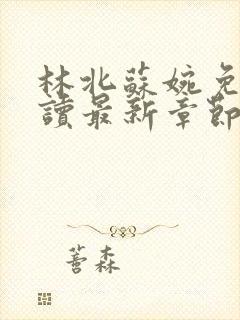 林北蘇婉免
讀最新章節
善森